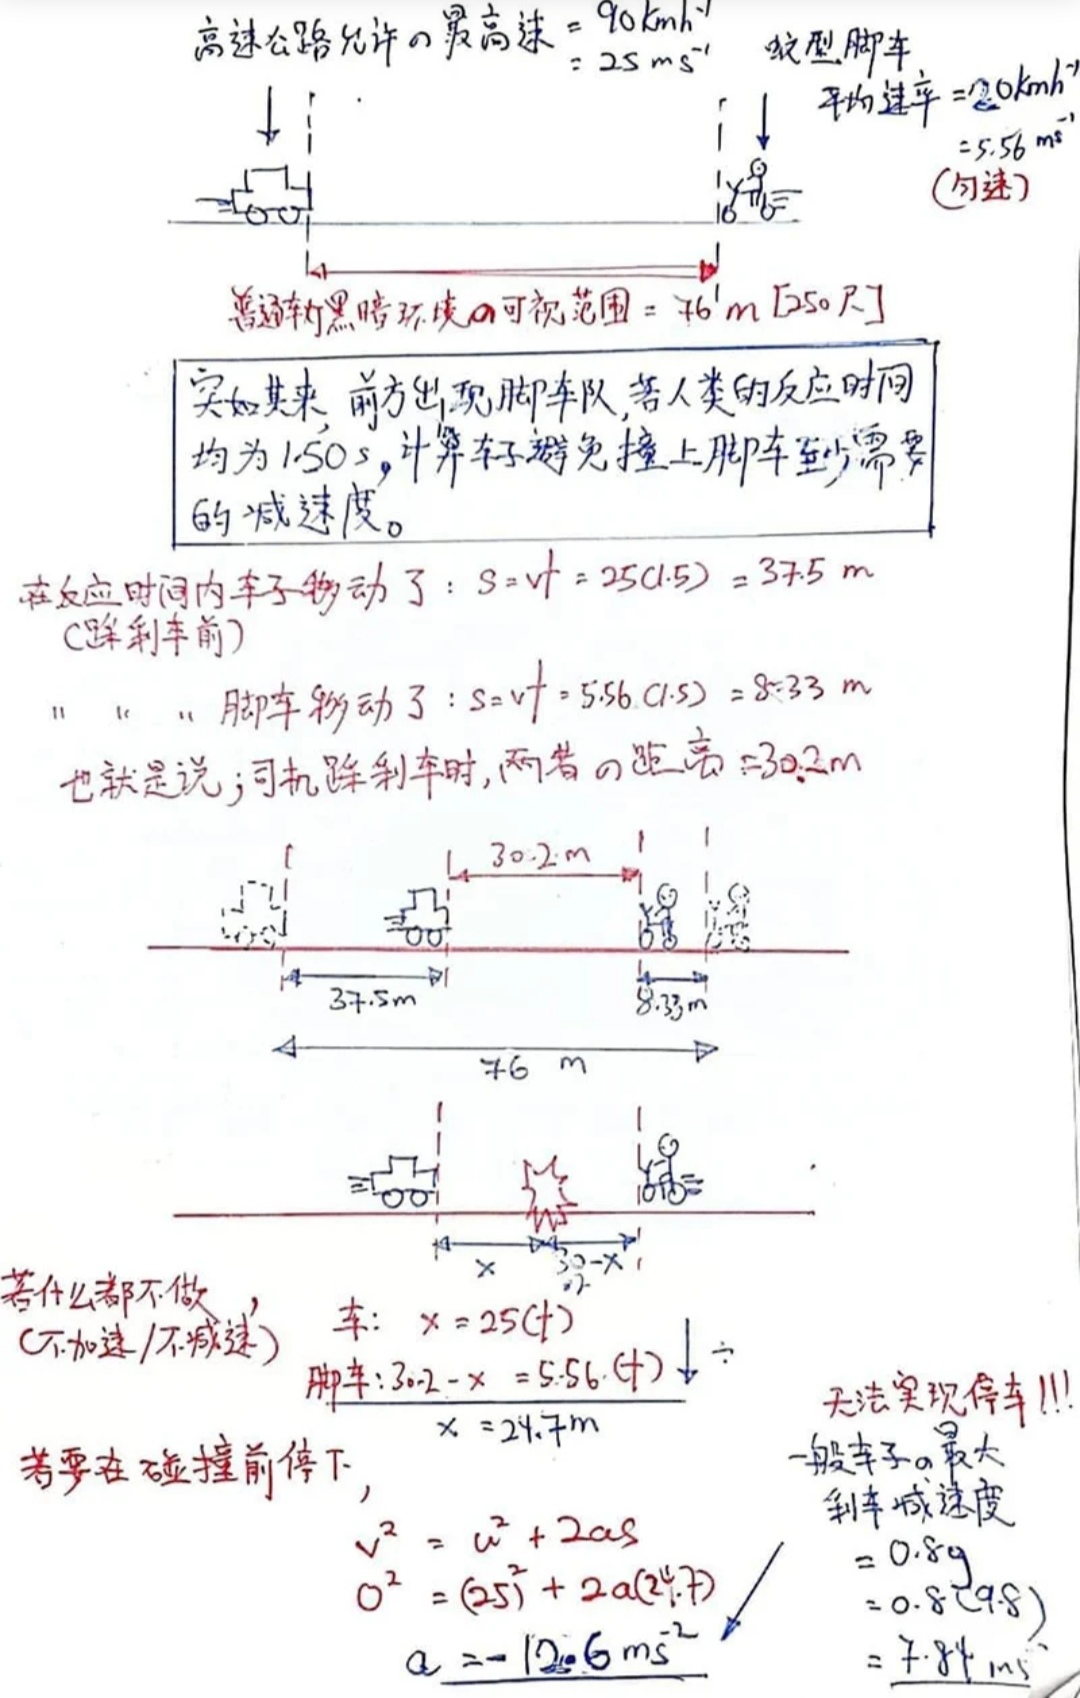 高速公路允许の最高速 = 90 kmh⁻¹
= 25 ms⁻¹
蚊型脚车
平均速率 = 20 kmh⁻¹
= 5.56 ms⁻¹
(匀速)
普通车灯黑暗环境の可视范围 = 76 m [250尺]
突如其来, 前方出现脚车队, 若人类的反应时间
均为1.50s, 计算车子避免撞上脚车至少需要
的减速度。
在反应时间内车子移动了: S = vt = 25(1.5) = 37.5 m
(踩刹车前)
" " " 脚车移动了: S = vt = 5.56(1.5) = 8.33 m
也就是说; 司机踩刹车时, 两者の距离 = 30.2m
30.2 m
37.5m
8.33m
76 m
x
30.2-x
若什么都不做,
(不加速/不减速)
车: x = 25(t)
脚车: 30.2 - x = 5.56(t) ÷
x = 24.7m
若要在碰撞前停下,
v² = u² + 2as
0² = (25)² + 2a(24.7)
a = -12.6 ms⁻²
无法实现停车!!!
一般车子の最大
刹车减速度
= 0.8g
= 0.8(9.8)
= 7.84 ms⁻